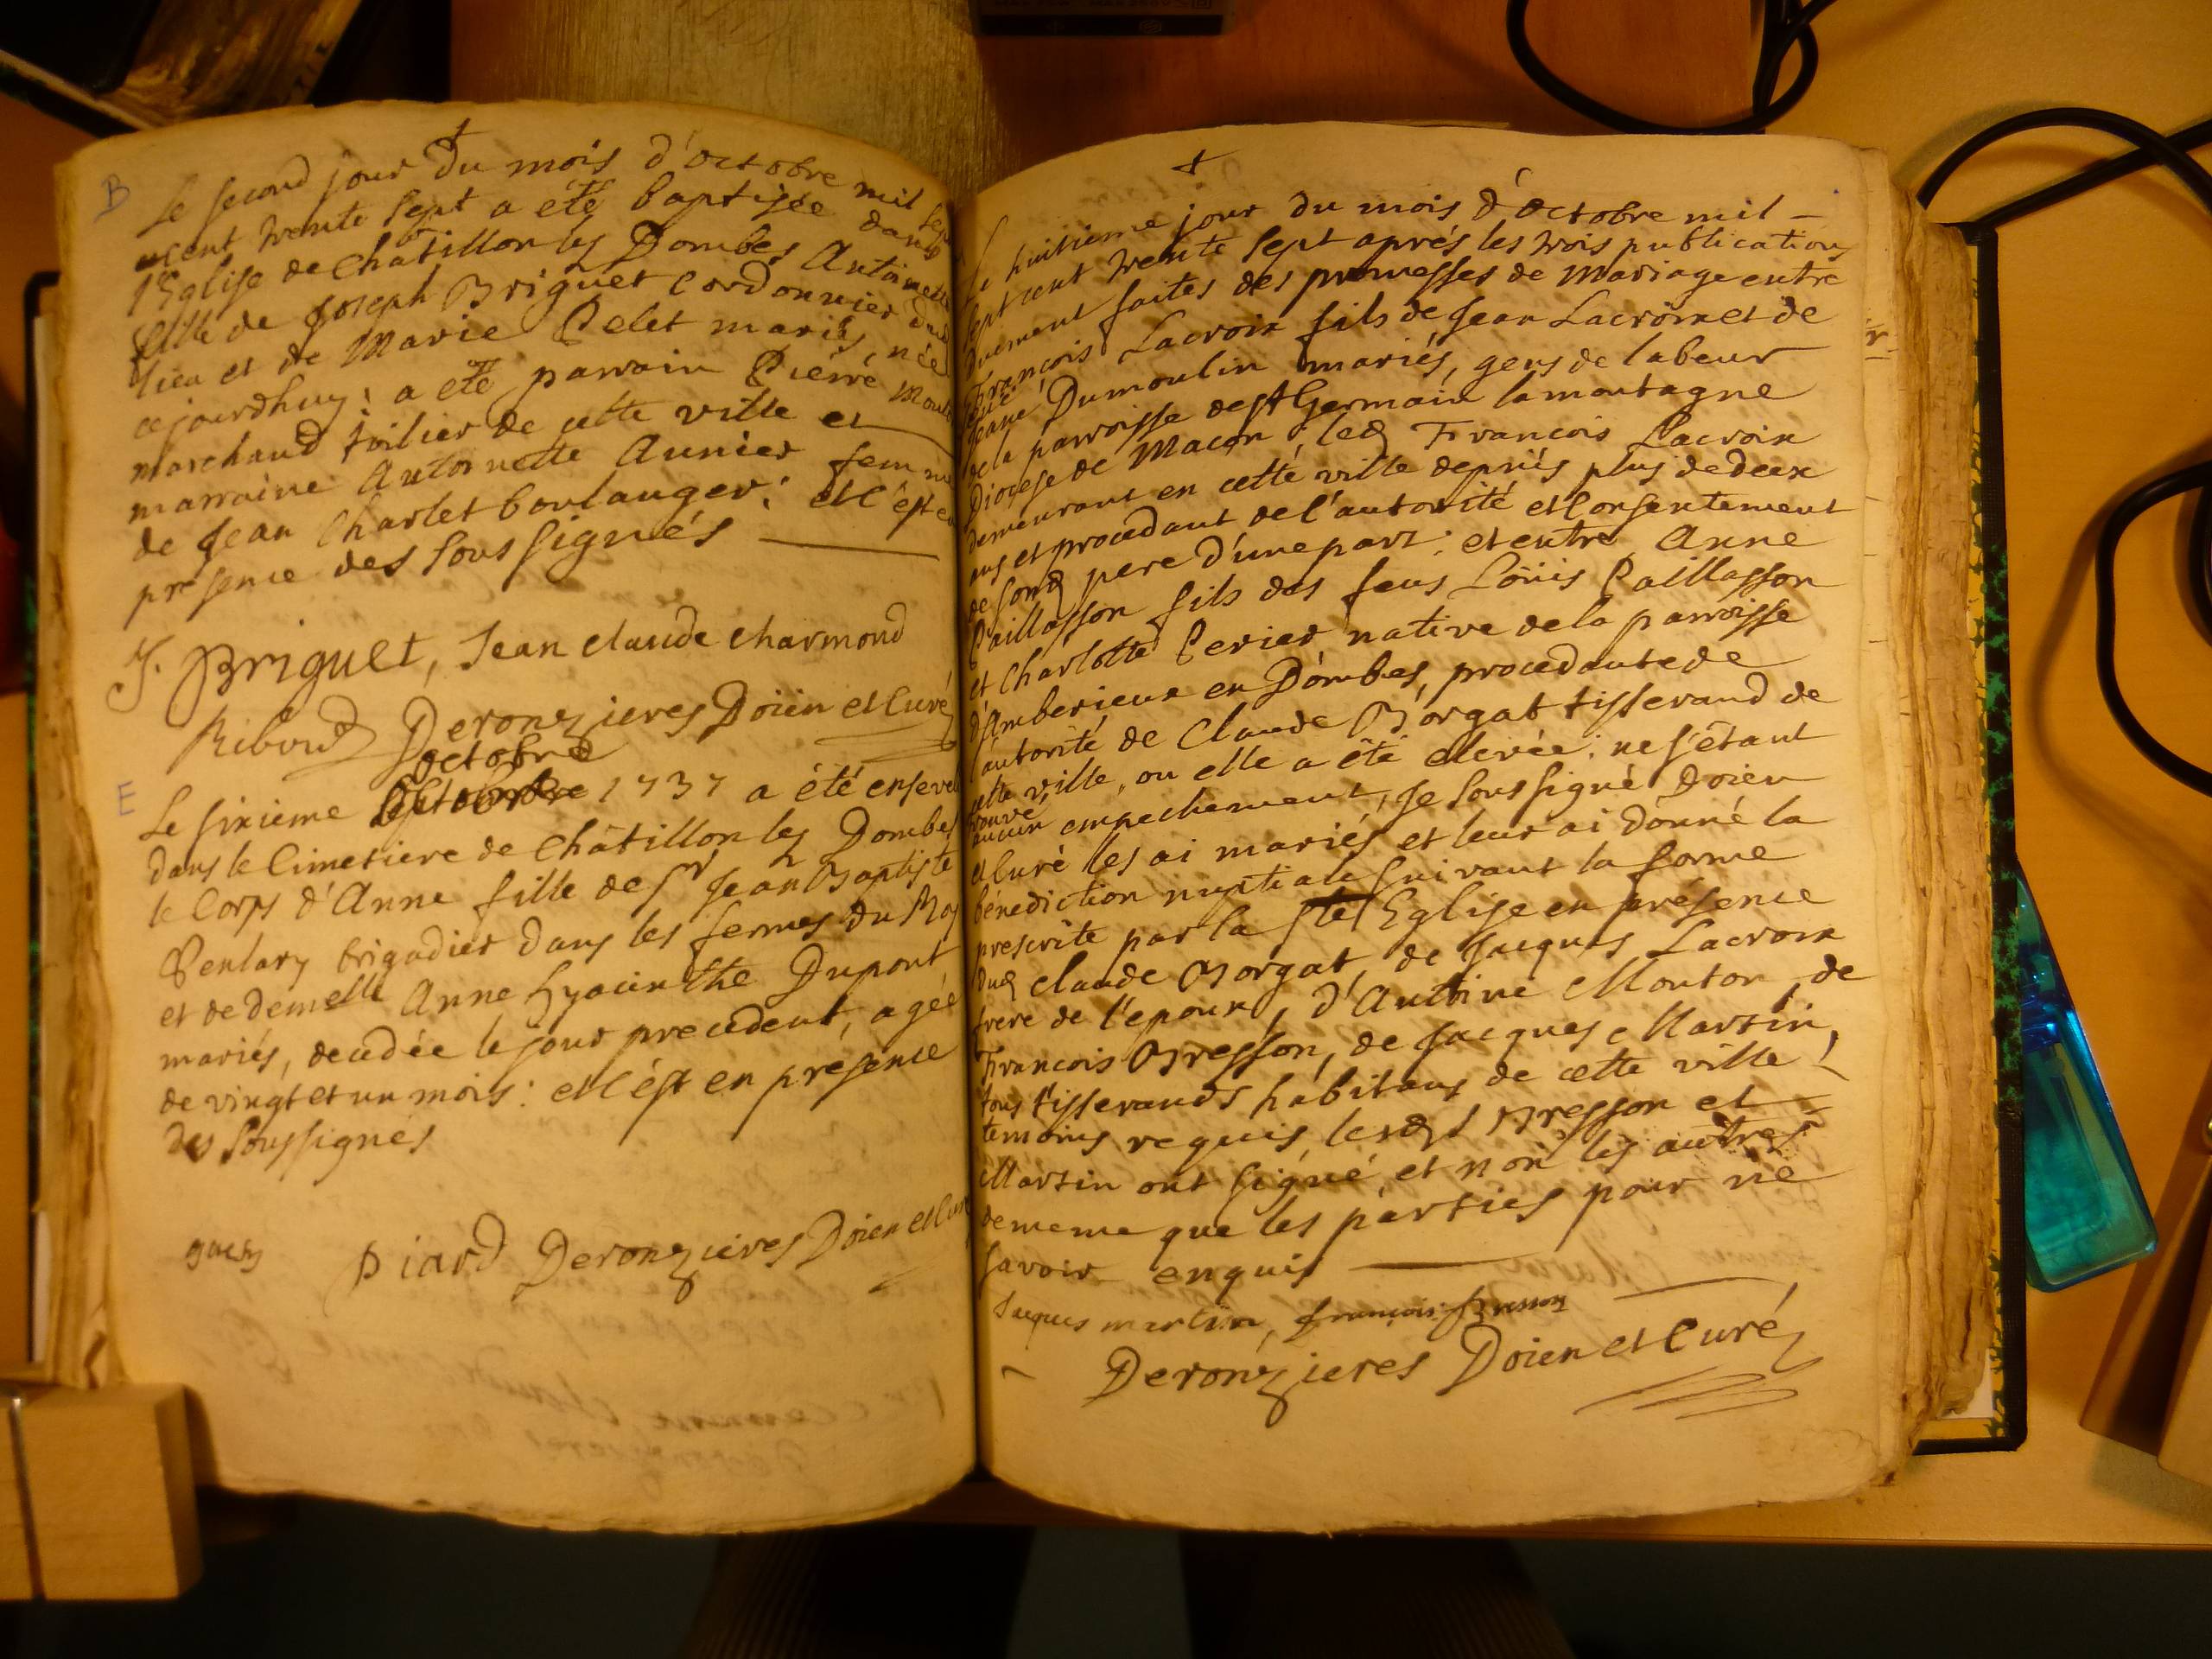 B
Le second jour du mois d'octobre mil sept
cent trente sept a été baptisée dans
l'Eglise de Châtillon les Dombes Antoinette
fille de Joseph Briguet Cordonnier dud
lieu et de Marie Pelet mariés, née
cejourdhuy; a été parrain Pierre
marchand toilier de cette ville et
marraine Antoinette Aunier femme
de Jean Charlet boulanger: et c'est en
présence des soussignés
J. Briguet, Jean claude charmond
Riboud Deronzieres Doien et Curé
octobre
E
Le sixieme 1737 a été enseveli
dans le Cimetiere de Châtillon les Dombes
le Corps d'Anne fille de Sr Jean Baptiste
Penlary brigadier dans les fermes du Roy
et de demelle Anne hyacinthe Dupont
mariés, decedée le jour precedent, agée
de vingt et un mois: et c'est en présence
des soussignés
Diard Deronzieres Doien et Curé
Le huitieme jour du mois d'octobre mil
sept cent trente sept aprés les trois publications
duement faites des promesses de Mariage entre
François Lacroix fils de Jean Lacroix et de
Jeane Dumoulin mariés, gens de labeur
de la parroisse de st Germain la montagne
Diocese de Macon; led François Lacroix
demeurant en cette ville depuis plus de deux
ans et procedant de l'autorité et Consentement
de sond pere d'une part; et entre Anne
Paillasson fils des feus Loüis Paillasson
et Charlotte Perier native de la parroisse
d'Amberieux en Dombes, procedante de
l'autorité de Claude Borgat tisserand de
cette ville, ou elle a été elevée; ne s'étant
trouvé
aucun empechement, Je soussigné Doien
et Curé les ai mariés et leur ai donné la
bénediction nuptiale suivant la forme
prescrite par la ste Eglise en présence
dud Claude Borgat, de Jacques Lacroix
frere de l'epoux, d'Antoine Monton, de
François Bresson, de Jacques Martin,
tous tisserands habitans de cette ville
temoins requis, lesds Bresson et
Martin ont signé, et non les autres
de meme que les parties pour ne
savoir enquis
Jacques martin, françois Bresson
Deronzieres Doien et Curé